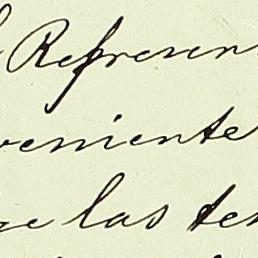 Represen
veniente
ue las ter